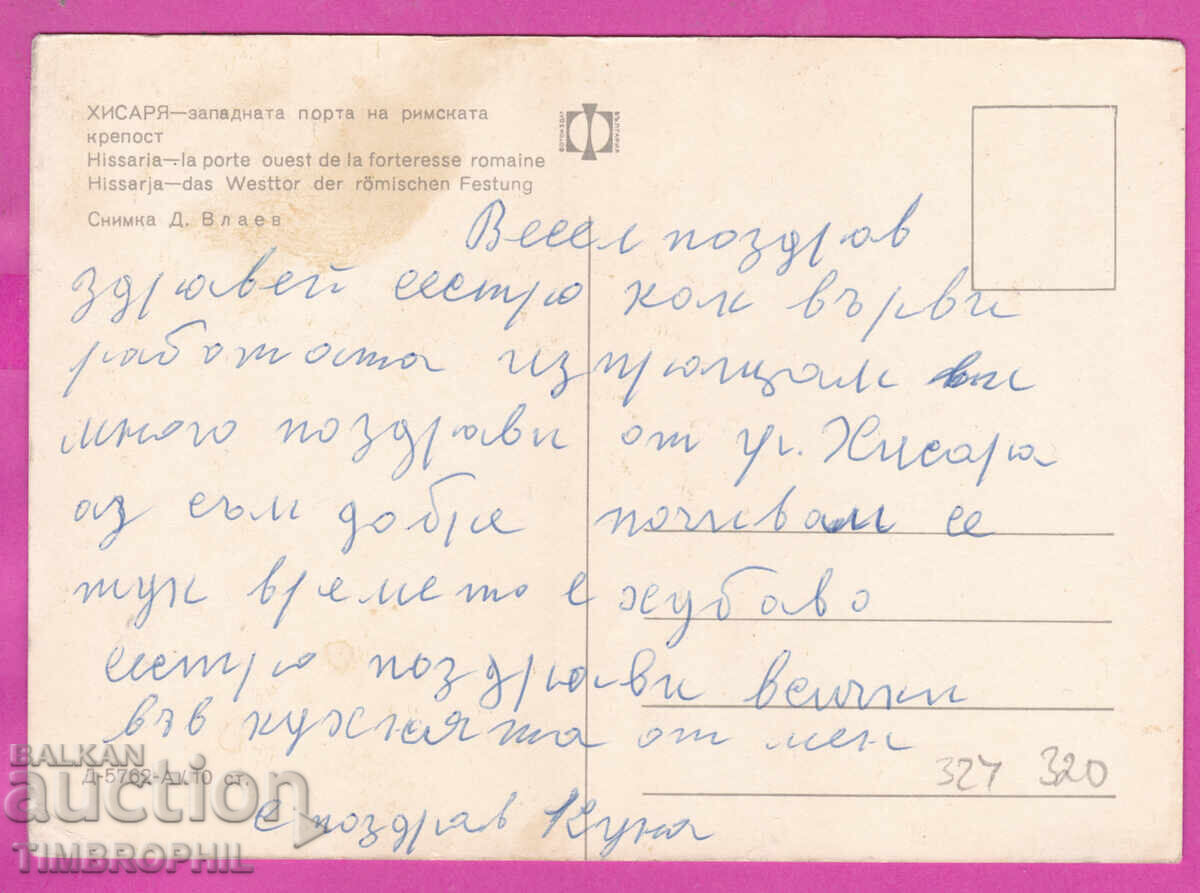 ХИСАРЯ—западната порта на римската
крепост
Hissaria—la porte ouest de la forteresse romaine
Hissarja—das Westtor der römischen Festung
Снимка Д. Влаев
ФОТОИЗДАТ БЪЛГАРИЯ
Весел поздрав
здравей сестро как върви
работата изпращам ви
много поздрави от гр. Хисаря
аз съм добре почивам се
тук времето е хубаво
сестро поздрави всички
във кухнята от мен
327 320
Д-5762-А
10 ст.
с поздрав Куна
BALKAN
auction
TIMBROPHIL